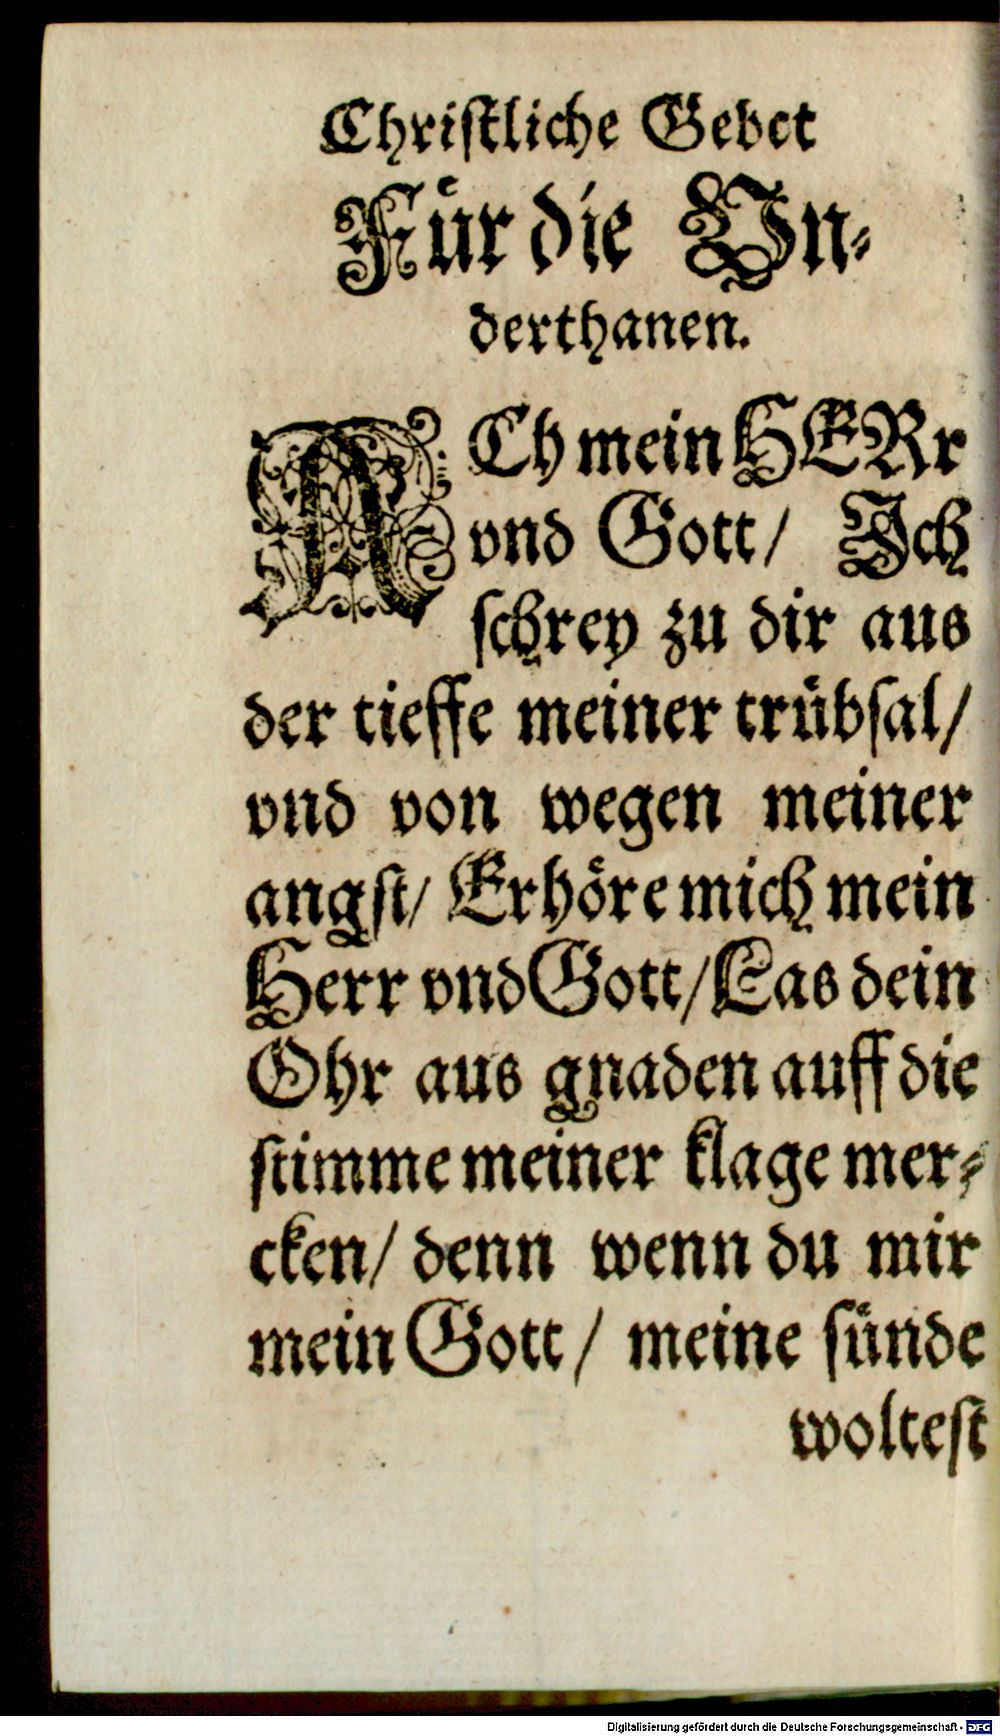 Chriſtliche Gebet
Fuͤr die Vn⸗
derthanen.
ACh mein HERr
vnd Gott/ Ich
ſchrey zu dir aus
der tieffe meiner truͤbſal/
vnd von wegen meiner
angſt/ Erhoͤre mich mein
Herr vnd Gott/ Las dein
Ohr aus gnaden auff die
ſtimme meiner klage mer⸗
cken/ denn wenn du mir
mein Gott/ meine ſuͤnde
wolteſt
Digitalisierung gefördert durch die Deutsche Forschungsgemeinschaft - DFG